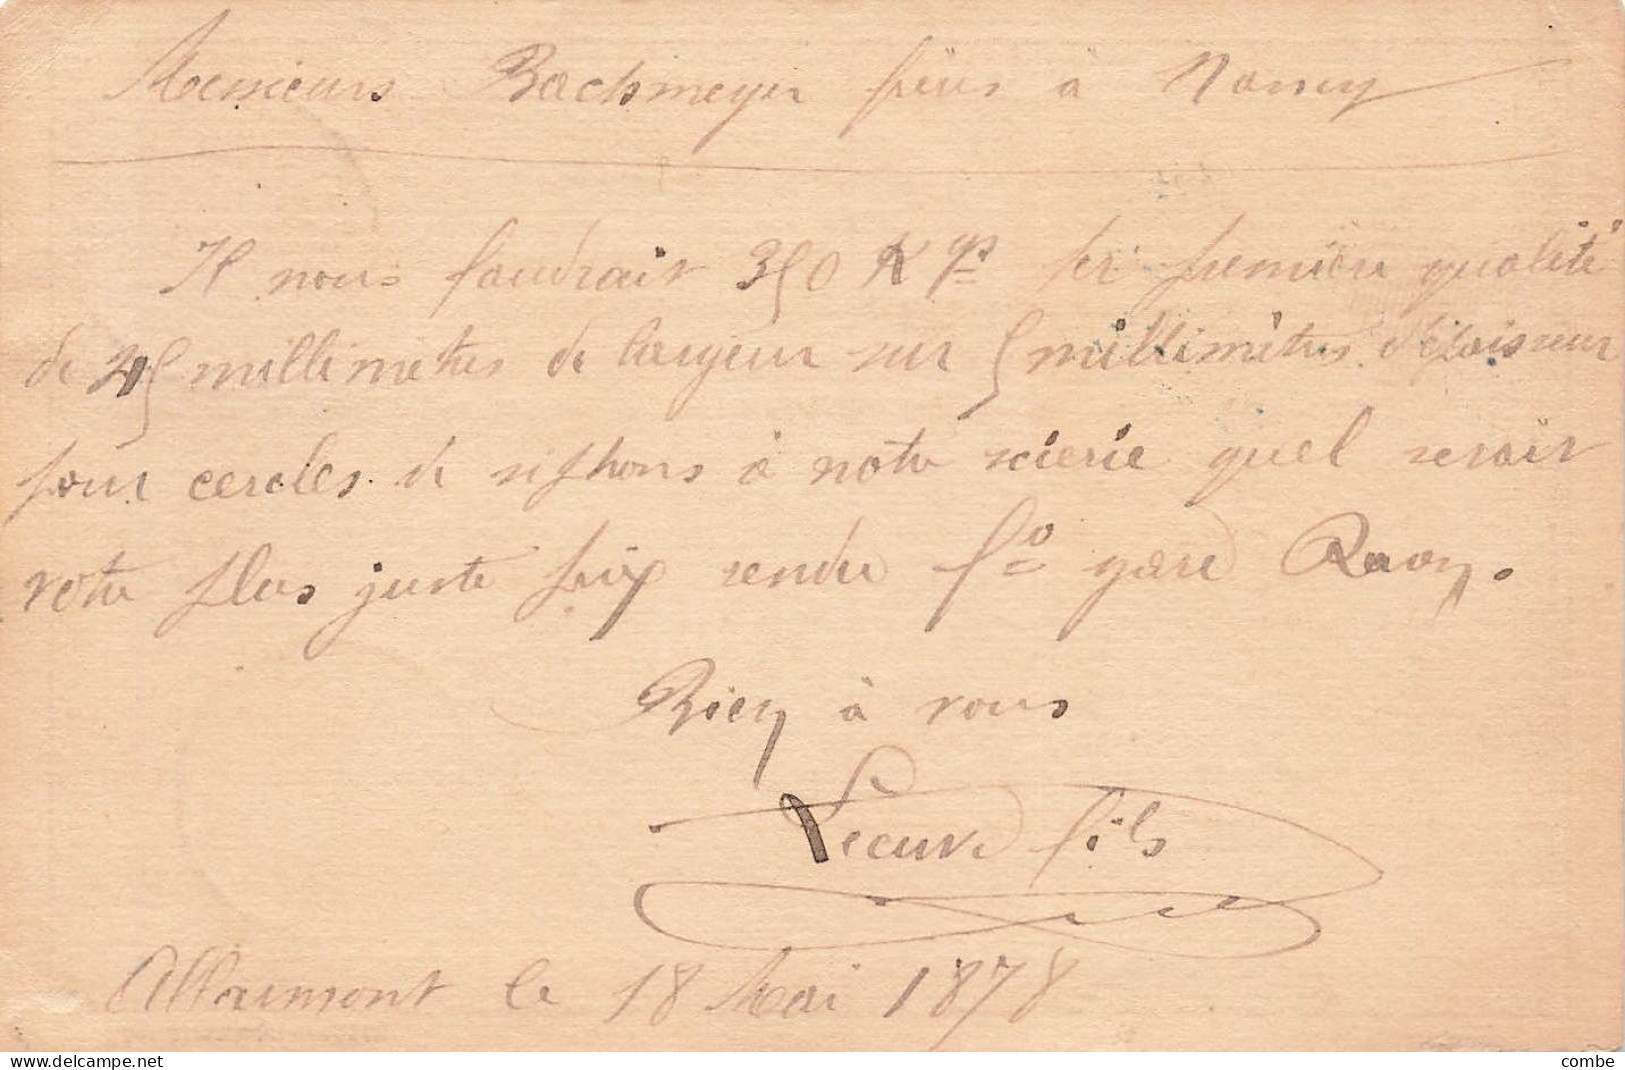 Messieurs Bachmeyer frères à Nancy
Il nous faudrait 350 Kgs fer première qualité
de 45 millimètres de largeur sur 5 millimètres d'épaisseur
pour cercles de siphons à notre scierie quel serait
votre plus juste prix rendu fo gare Raon.
Bien à vous
Lecuve fils
Allarmont le 18 Mai 1878
www.delcampe.net
combe